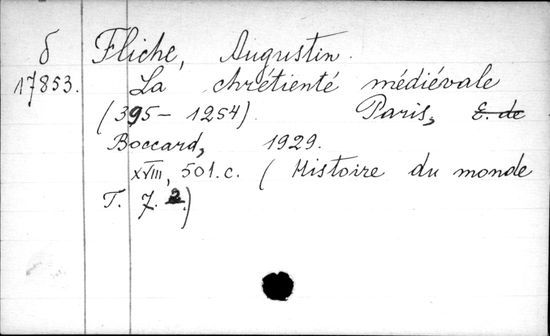 б Fliche, Augustin.
17853. La chrétienté médiévale
(395-1254). Paris, E. de
Boccard, 1929.
XVIII, 501.c. (Histoire du monde
T. 7. 2.)